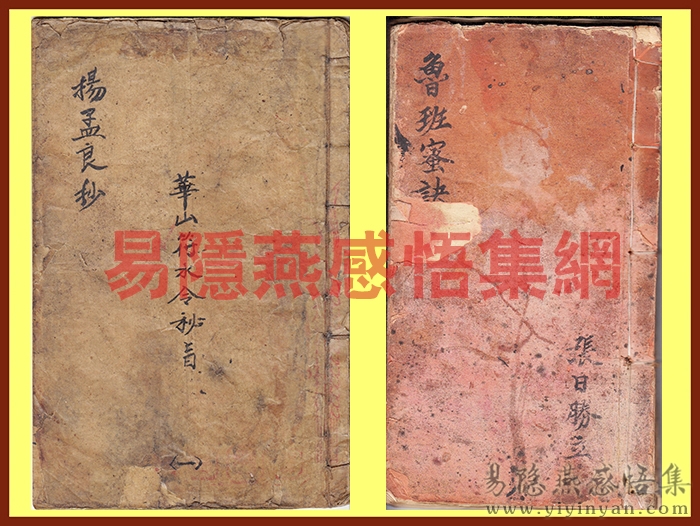 揚孟良抄
華山符水令秘旨
〈一〉
魯班蜜訣
張日勝立
易隱燕感悟集網
易隐燕感悟集
www.yiyinyan.com